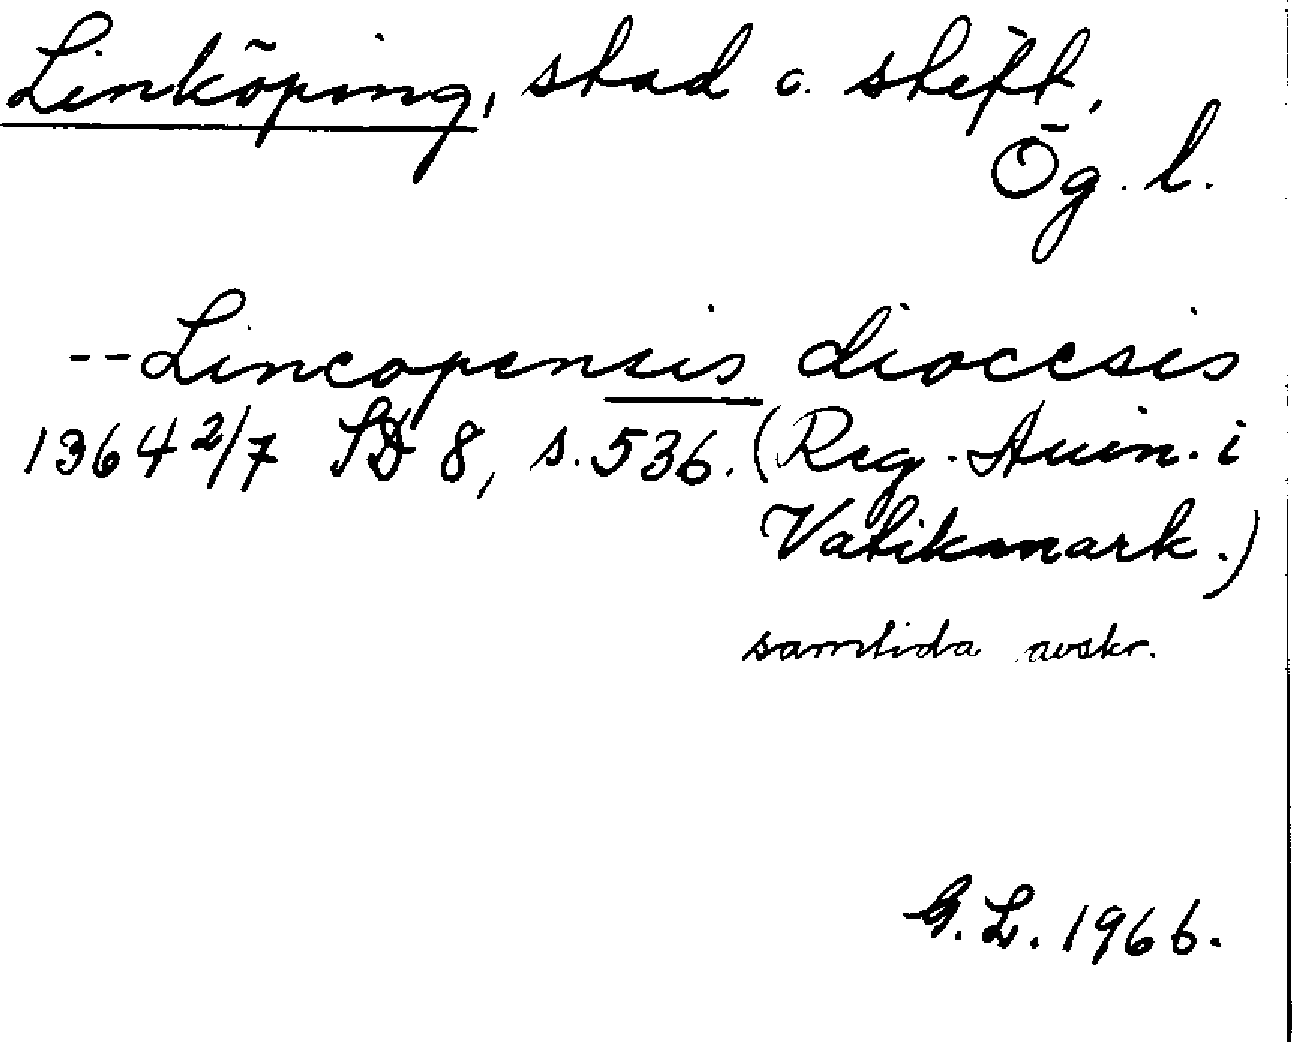 Linköping, stad o. stift,
Ög. l.
--Lincopensis diocesis
1364 2/7 SD 8, s. 536. (Reg. Avin. i
Vatikanark.)
samtida avskr.
G. L. 1966.